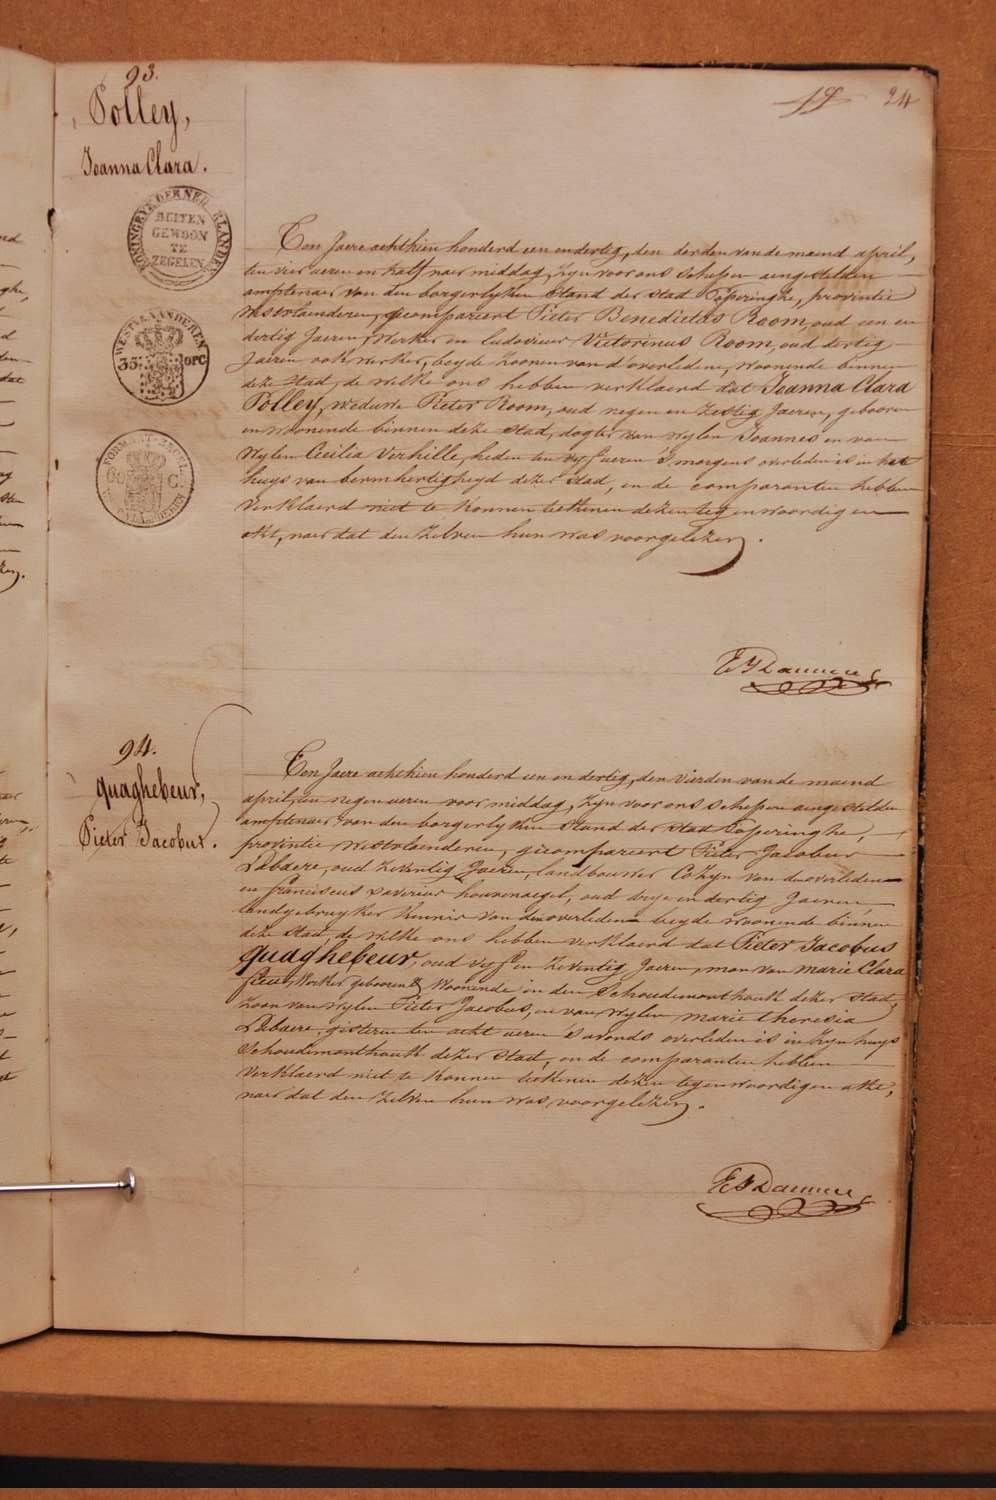 24
93.
Polley,
Joanna Clara.
KONINGRYK DER NEDERLANDEN
BUITEN
GEWOON
TE
ZEGELEN
WEST-VLAANDEREN
35 OPC
FORMAAT
C.
Ten Jaere achthien honderd een en dertig, den derden van de maend april,
ten vier ueren en half naer middag, zyn voor ons schepen aengestelden
amptenaer van den borgerlyken stand der stad Poperinghe, provintie
westvlaenderen, gecompareert Pieter Benedictus Room, oud een en
dertig Jaeren, werker en Ludovicus Victorinus Room, oud dertig
Jaeren ook werker, beyde zoonen van d'overledene, woonende binnen
deze Stad, de welke ons hebben verklaerd dat Joanna Clara
Polley, weduwe Pieter Room, oud negen en zestig Jaeren, gebooren
en woonende binnen deze stad, dogter van wylen Joannes en van
wylen Cecilia Verhille, heden ten vyf ueren 's morgens overleden is in het
huys van bermhertigheyd dezer stad, en de comparanten hebben
verklaerd niet te konnen teekenen dezen tegenwoordigen
akt, naer dat den zelven hun was voorgelezen.
94.
Quaghebeur,
Pieter Jacobus.
Ten Jaere achthien honderd een en dertig, den vierden van de maend
april, ten negen ueren voor middag, zyn voor ons schepen aengestelden
amptenaer van den borgerlyken stand der stad Poperinghe,
provintie westvlaenderen, gecompareert Pieter Jacobus
Debaere, oud zeventig Jaeren, landbouwer Cozyn van den overleden
en franciscus xaverius houvenaegel, oud drye en dertig Jaeren
landgebruyker kennis van den overleden beyde woonende binnen
deze stad, de welke ons hebben verklaerd dat Pieter Jacobus
Quaghebeur, oud vyf en zeventig Jaeren, man van marie Clara
werker gebooren woonende in den Schoudemonthouk dezer stad,
zoon van wylen Pieter Jacobus, en van wylen marie theresia
Debaere, gisteren ten acht ueren 's avonds overleden is in zyn huys
Schoudemonthouk dezer stad, en de comparanten hebben
verklaerd niet te konnen teekenen dezen tegenwoordigen akte,
naer dat den zelven hun was voorgelezen.